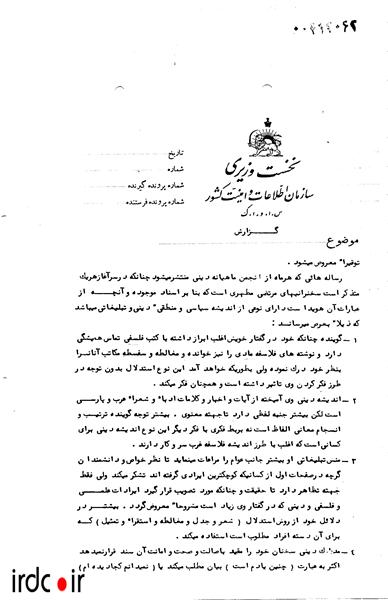 ۰۰۲۹۴۰۶۲
نخست وزیری
سازمان اطلاعات و امنیت کشور
س.ا.و.ا.ک
تاریخ
شماره
شماره پرونده گیرنده
شماره پرونده فرستنده
گزارش
موضوع
توقیرا" معروض میشود.
رساله هائی که هرماه از انجمن ماهیانه دینی منتشرمیشود چنانکه درسرآغازهریك
متذکر است سخنرانیهای مرتضی مطهری است که بنا بر اسناد موجوده و آنچه از
عبارات آن هویداست دارای نوعی از اندیشه سیاسی و منطقی" دینی و تبلیغاتی میباشد
که ذیلا" بعرض میرساند:
۱ - گوینده چنانکه خود در گفتار خویش اغلب ابراز داشته با کتب فلسفی تماس همیشگی
دارد و نوشته های فلاسفه مادی را نیز خوانده و مغالطه و سفسطه مکاتب آنانرا
بنظر خود درك نموده ولی بطوریکه خواهد آمد این نوع استدلال بدون توجه در
طرز فکر کردن وی تاثیر داشته است و همچنان فکر میکند.
۲ - اندیشه دینی وی آمیخته از آیات و اخبار و کلمات ادبا و شعراء عرب و پارسی
است لکن بیشتر جنبه لفظی دارد تا جهته معنوی. بیشتر توجه گوینده ترتیب و
انسجام معانی الفاظ است نه بربط فکری با فکر دیگر این نوع اندیشه دینی برای
کسانی است که اغلب با طرز اندیشه فلاسفه غرب سر و کار دارند.
۳ - تبلیغاتی او بیشتر جانب عوام را مراعات مینماید تا نظر خواص و دانشمندان
گرچه در صفحات اول از کسانیکه کوچکترین ایرادی گرفته اند تشکر میکند ولی فقط
جهته تظاهر دارد تا حقیقت و چنانکه مورد تصویب قرار گیرد ایرادات علمی
و فلسفی و دینی که در گفتار وی زیاد است مشروحا" معروض گردد. بیشتر در
دلائل خود از روش استدلال (شعر و جدل و مغالطه و استقراء و تمثیل) که
برای آن دسته افراد مطلوب است استفاده میکند.
۴ - مدارك دینی سخنان خود را مقید باصالت و صحت و امانت آن سند قرارنمیدهد
اکثر به عبارت (چنین یادم است) بیان مطلب میکند یا (نمیدانم کجا دیده ام)
irdc.ir